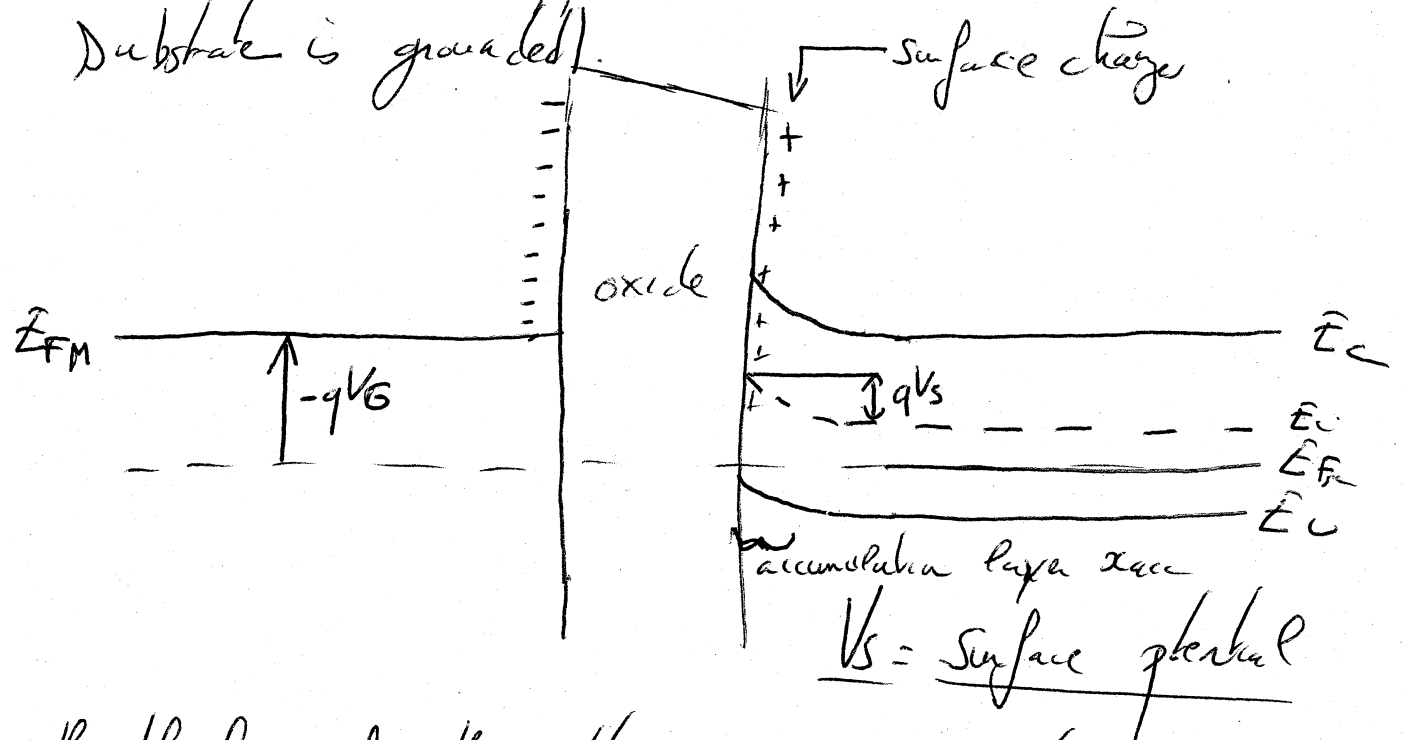 Substrate is grounded.
surface charge
oxide
EFM
-qVG
EC
qVs
Ei
EFs
Ev
accumulation layer xacc
Vs = surface potential